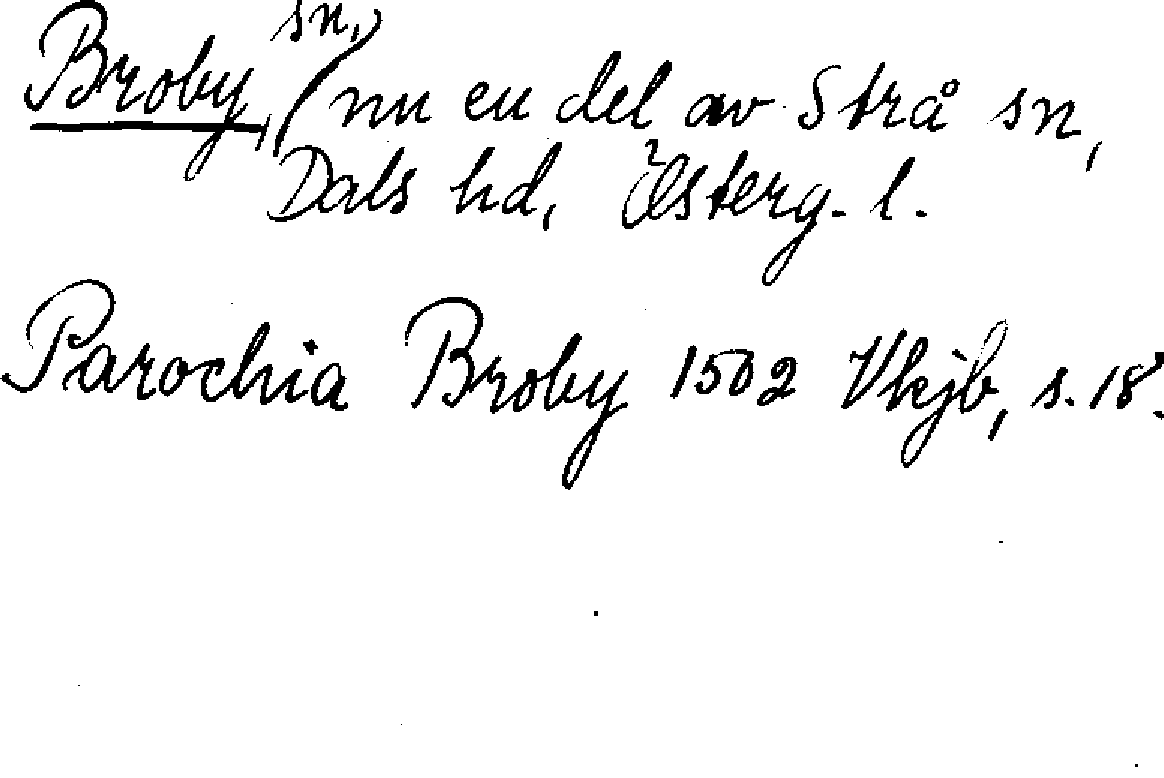 Broby, sn, nu en del av Strå sn,
Dals hd, Österg. l.
Parochia Broby 1502 Vkjb, s. 18.